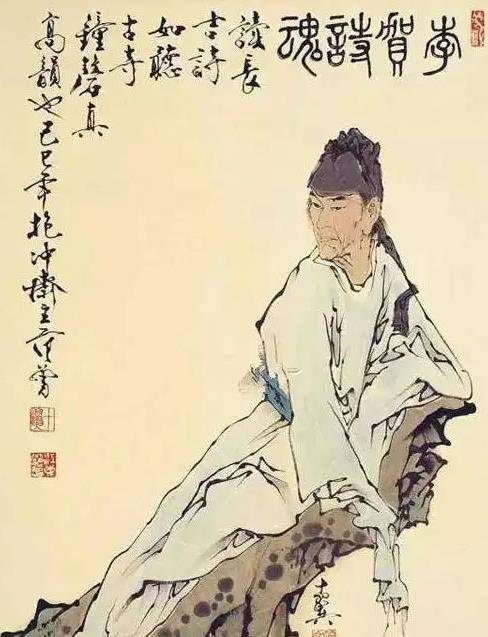 李賀詩魂
讀長
吉詩
如聽
古寺
鐘磬真
高韻也己巳年抱冲齋主范曾
十翼